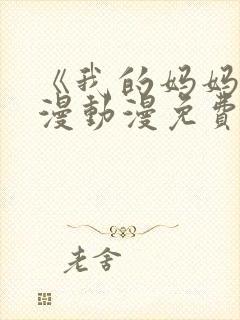 《我的妈妈
漫動漫免費
老舍